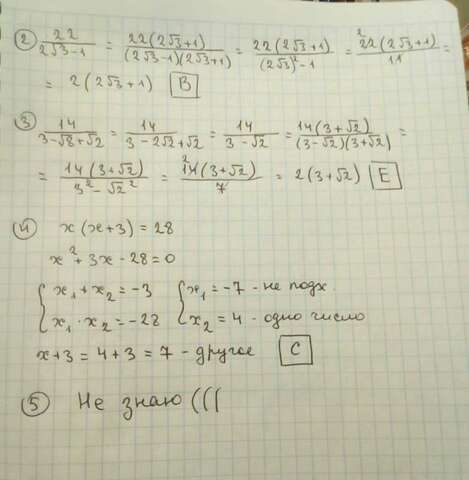 ② 22/(2√3-1) = 22(2√3+1)/((2√3-1)(2√3+1)) = 22(2√3+1)/((2√3)²-1) = ²22(2√3+1)/11 =
= 2(2√3+1) B
③ 14/(3-√8+√2) = 14/(3-2√2+√2) = 14/(3-√2) = 14(3+√2)/((3-√2)(3+√2)) =
= 14(3+√2)/(3²-√2²) = ²14(3+√2)/7 = 2(3+√2) E
④ x(x+3)=28
x²+3x-28=0
{x₁+x₂=-3 {x₁=-7 - не подх.
x₁·x₂=-28 x₂=4 - одно число
x+3=4+3=7 - другое C
⑤ Не знаю (((